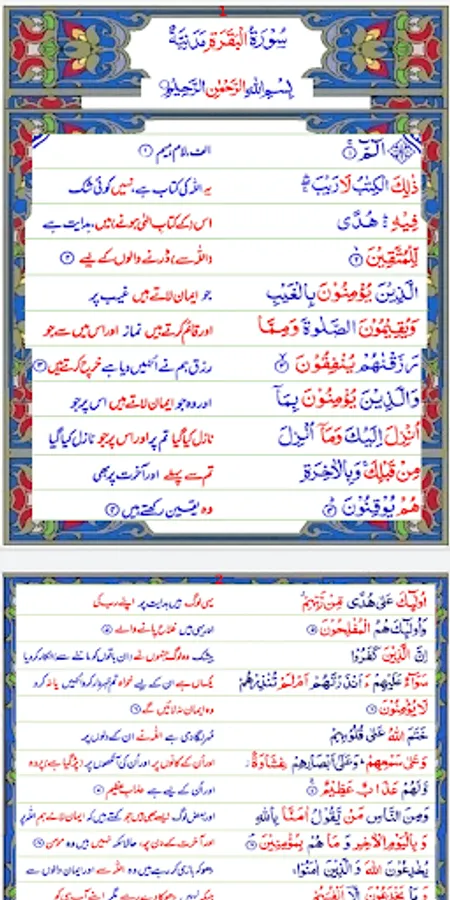 1
سُوْرَةُ الْبَقَرَةِ مَدَنِيَّةٌ
بِسْمِ اللهِ الرَّحْمٰنِ الرَّحِيْمِ
الٓمّٓ ۚ ۱ الف، لام، میم ۱
ذٰلِكَ الْكِتٰبُ لَا رَيْبَ ۛۖ یہ اللہ کی کتاب ہے، نہیں کوئی شک
فِيْهِ ۛ هُدًى اس (کے کتاب الٰہی ہونے) میں، ہدایت ہے
لِّلْمُتَّقِيْنَ ۲ (اللہ سے) ڈرنے والوں کے لیے ۲
الَّذِيْنَ يُؤْمِنُوْنَ بِالْغَيْبِ جو ایمان لاتے ہیں غیب پر
وَيُقِيْمُوْنَ الصَّلٰوةَ وَمِمَّا اور قائم کرتے ہیں نماز اور اس میں سے جو
رَزَقْنٰهُمْ يُنْفِقُوْنَ ۳ رزق ہم نے انہیں دیا ہے خرچ کرتے ہیں ۳
وَالَّذِيْنَ يُؤْمِنُوْنَ بِمَآ اور وہ جو ایمان لاتے ہیں اس پر جو
اُنْزِلَ اِلَيْكَ وَمَآ اُنْزِلَ نازل کیا گیا تم پر اور اس پر جو نازل کیا گیا
مِنْ قَبْلِكَ وَبِالْاٰخِرَةِ تم سے پہلے اور آخرت پر بھی
هُمْ يُوْقِنُوْنَ ۴ وہ یقین رکھتے ہیں ۴
2
اُولٰٓئِكَ عَلٰى هُدًى مِّنْ رَّبِّهِمْ یہی لوگ ہیں ہدایت پر اپنے رب کی
وَاُولٰٓئِكَ هُمُ الْمُفْلِحُوْنَ ۵ اور یہی ہیں فلاح پانے والے ۵
اِنَّ الَّذِيْنَ كَفَرُوْا بیشک وہ لوگ جنہوں نے (ان باتوں کو ماننے سے) انکار کر دیا
سَوَآءٌ عَلَيْهِمْ ءَاَنْذَرْتَهُمْ اَمْ لَمْ تُنْذِرْهُمْ یکساں ہے ان کے لیے خواہ تم خبردار کرو انہیں یا نہ کرو
لَا يُؤْمِنُوْنَ ۶ وہ ایمان نہ لائیں گے ۶
خَتَمَ اللهُ عَلٰى قُلُوْبِهِمْ مہر لگا دی ہے اللہ نے ان کے دلوں پر
وَعَلٰى سَمْعِهِمْ ۖ وَعَلٰٓى اَبْصَارِهِمْ غِشَاوَةٌ اور ان کے کانوں پر اور ان کی آنکھوں پر (پڑ گیا ہے) پردہ
وَّلَهُمْ عَذَابٌ عَظِيْمٌ ۷ اور ان کے لیے ہے عذاب عظیم ۷
وَمِنَ النَّاسِ مَنْ يَّقُوْلُ اٰمَنَّا بِاللهِ اور بعض لوگ ایسے بھی ہیں جو کہتے ہیں کہ ایمان لائے ہم اللہ پر
وَبِالْيَوْمِ الْاٰخِرِ وَمَا هُمْ بِمُؤْمِنِيْنَ ۸ اور آخرت کے دن پر، حالانکہ نہیں ہیں وہ مومن ۸
يُخٰدِعُوْنَ اللهَ وَالَّذِيْنَ اٰمَنُوْا دھوکہ بازی کر رہے ہیں وہ اللہ سے اور ایمان والوں سے
وَمَا يَخْدَعُوْنَ اِلَّآ اَنْفُسَهُمْ جبکہ نہیں دھوکا دے رہے مگر اپنے آپ ہی کو